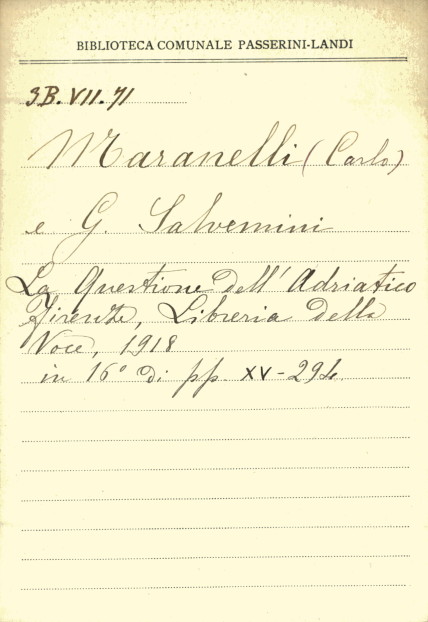 BIBLIOTECA COMUNALE PASSERINI-LANDI
3B. VII. 71
Maranelli (Carlo)
e G. Salvemini
La Questione dell' Adriatico
Firenze, Libreria della
Voce, 1918
in 16° di pp. XV-294.